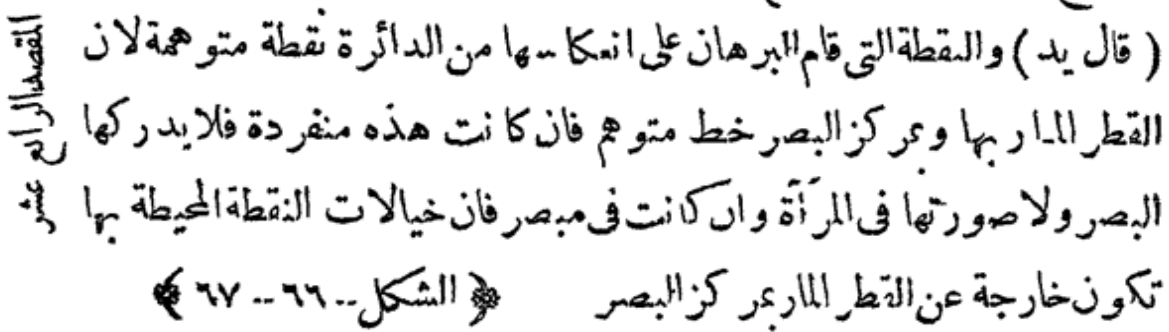 ( قال يد ) والنقطة التى قام البرهان على انعكاسها من الدائرة نقطة متوهمة لان
القطر المار بها وبمركز البصر خط متوهم فان كانت هذه منفردة فلا يدركها
البصر ولا صورتها فى المرآة وان كانت فى مبصر فان خيالات النقطة المحيطة بها
تكون خارجة عن القطر المار بمركز البصر ﴿ الشكل -- ٦٦ -- ٦٧ ﴾
المقصد الرابع عشر